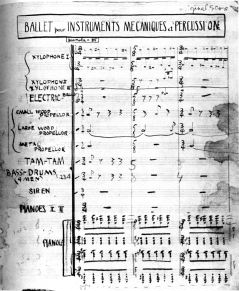 BALLET pour INSTRUMENTS MECANIQUES et PERCUSSION
XYLOPHONE I
XYLOPHONE II
XYLOPHONE III
ELECTRIC BELLS
SMALL WOOD
PROPELLOR
LARGE WOOD
PROPELLOR
METAL
PROPELLOR
TAM-TAM
BASS-DRUMS
4 MEN
SIREN
PIANOES I II
PIANOLA